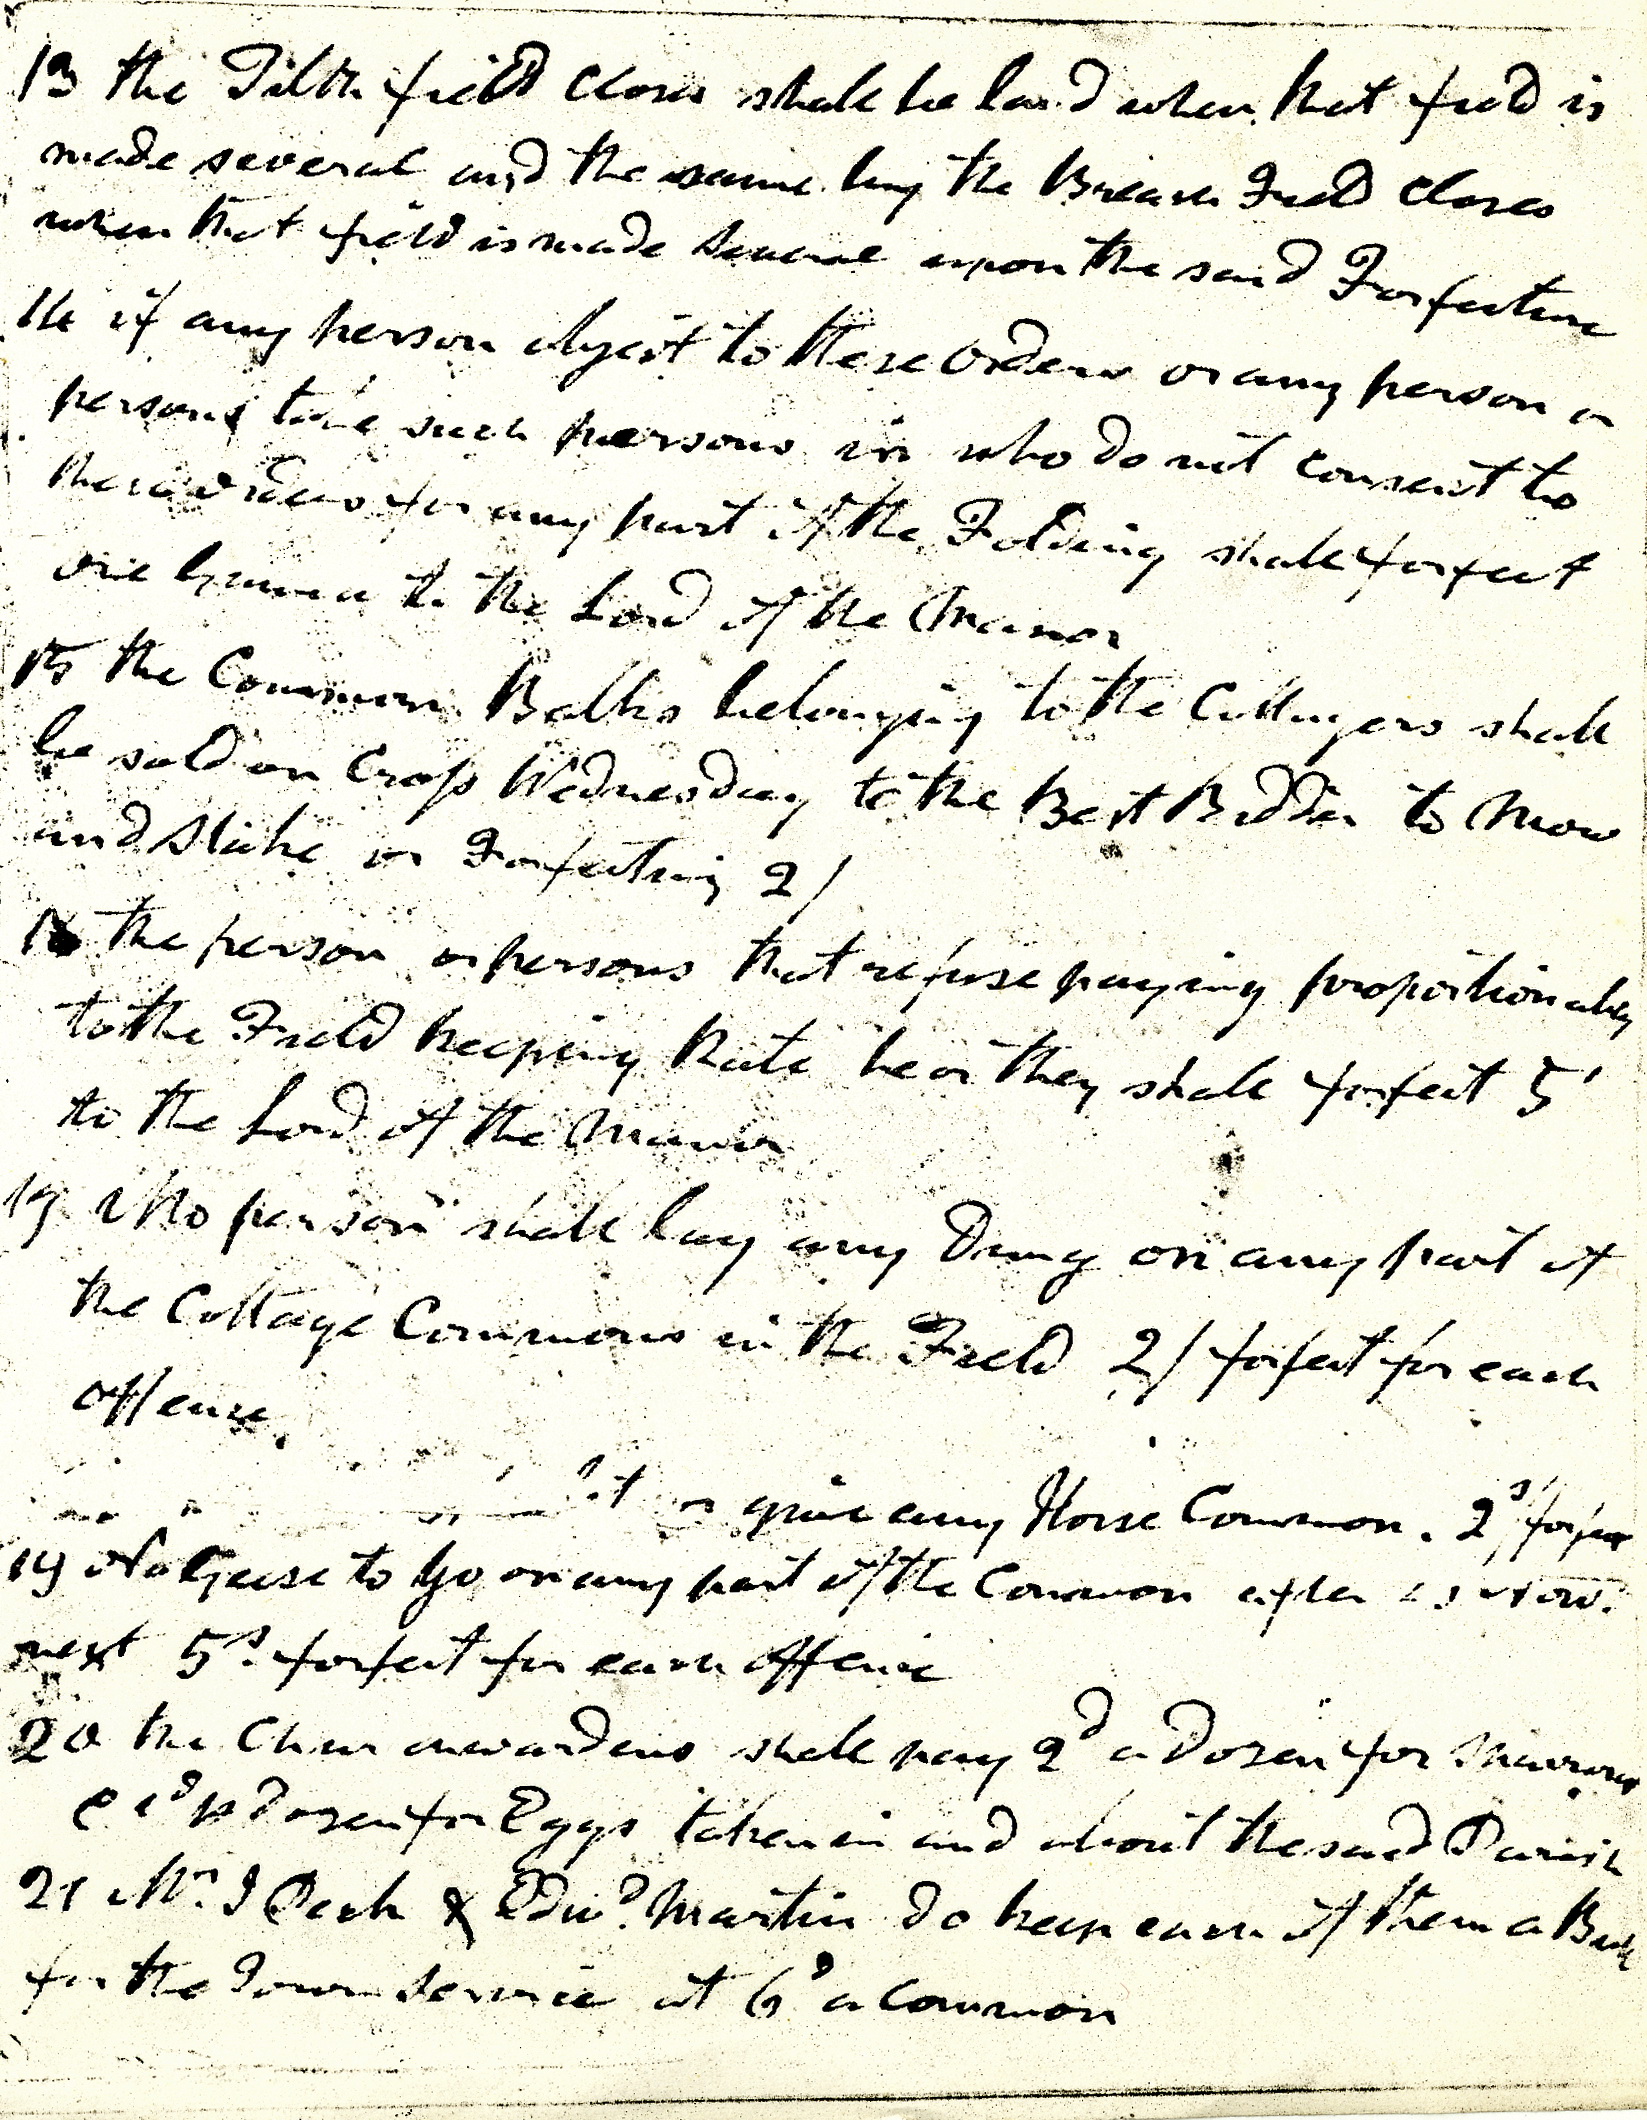 13 the Tilth field Closes shall be laid when that field is
made several and the same by the Breach Field Closes
when that field is made several upon the said Forfeiture
14 if any person object to these Orders or any person or
persons take such persons in who do not consent to
these orders for any part of the Folding shall forfeit
one Guinea to the Lord of the Manor
15 the Common Balks belonging to the Cottagers shall
be sold on Cross Wednesday to the Best Bidder to Mow
and Stake or Forfeiting 2/
16 the person or persons that refuse paying proportionabley
to the Field keeping Rate he or they shall forfeit 5'
to the Lord of the Manor
17 No person shall lay any Dung on any part of
the Cottage Commons in the Field 2/ forfeit for each
offense.
or give any Horse Common. 2s/ forfeit
19 No Geese to Go on any part of the Common after
next 5s. forfeit for each offence
20 the Churchwardens shall pay 2d a Dozen for Sparrows
& 1d pr Dozen for Eggs taken in and about the said Parish
21 Mr. J Peck & Edwd. Martin do keep each of them a Bull
for the Town Service at 6d a Common